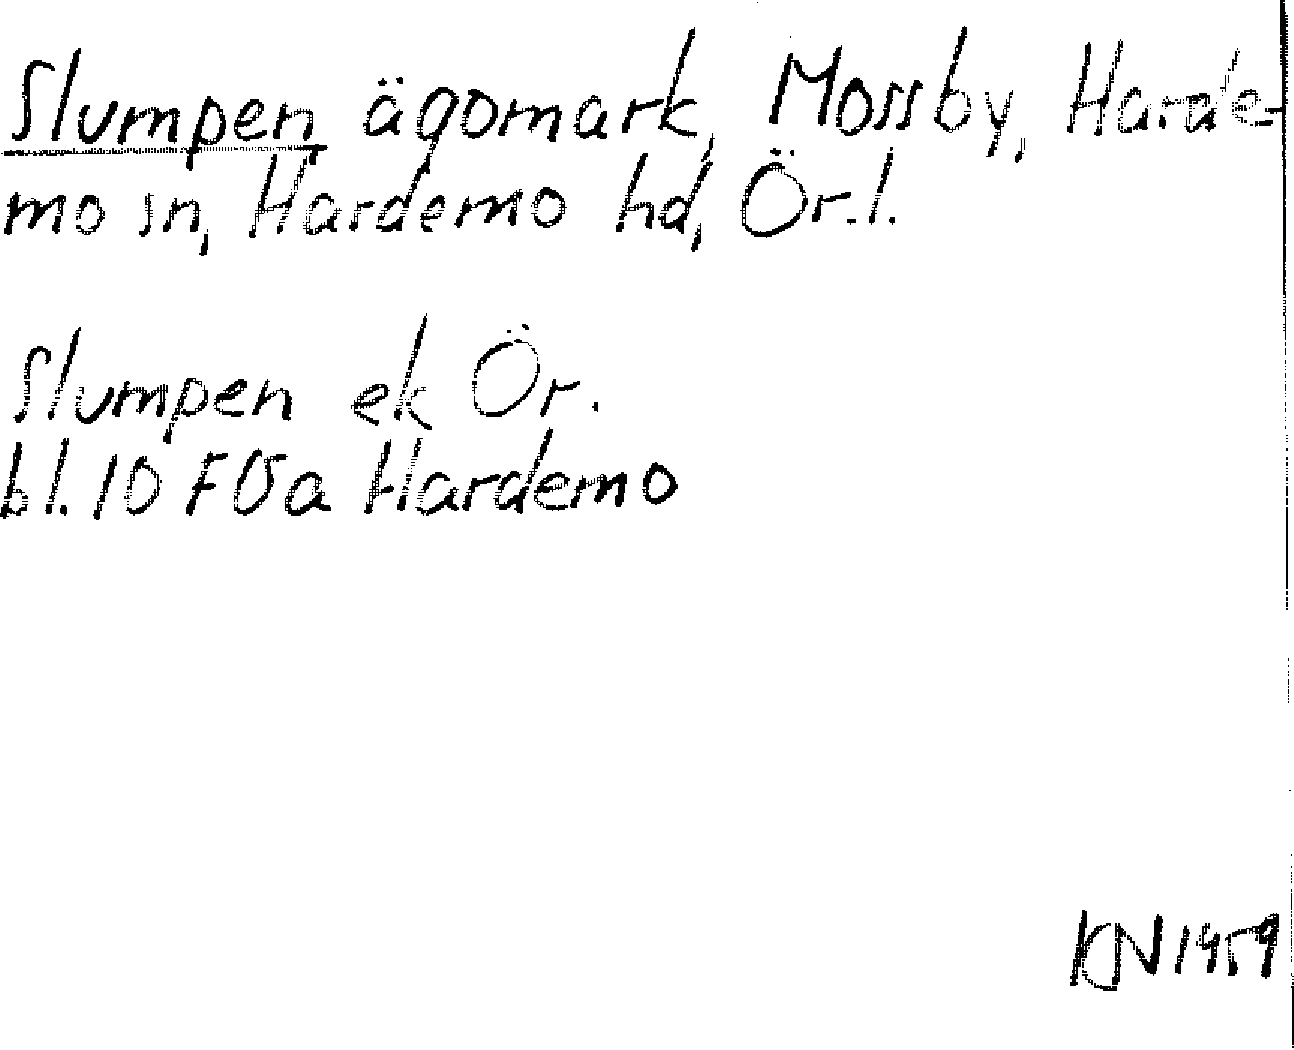 Slumpen ägomark, Mossby, Harde-
mo sn, Hardemo hd, Ör.l.
Slumpen ek Ör.
bl. 10 Hardemo
1959